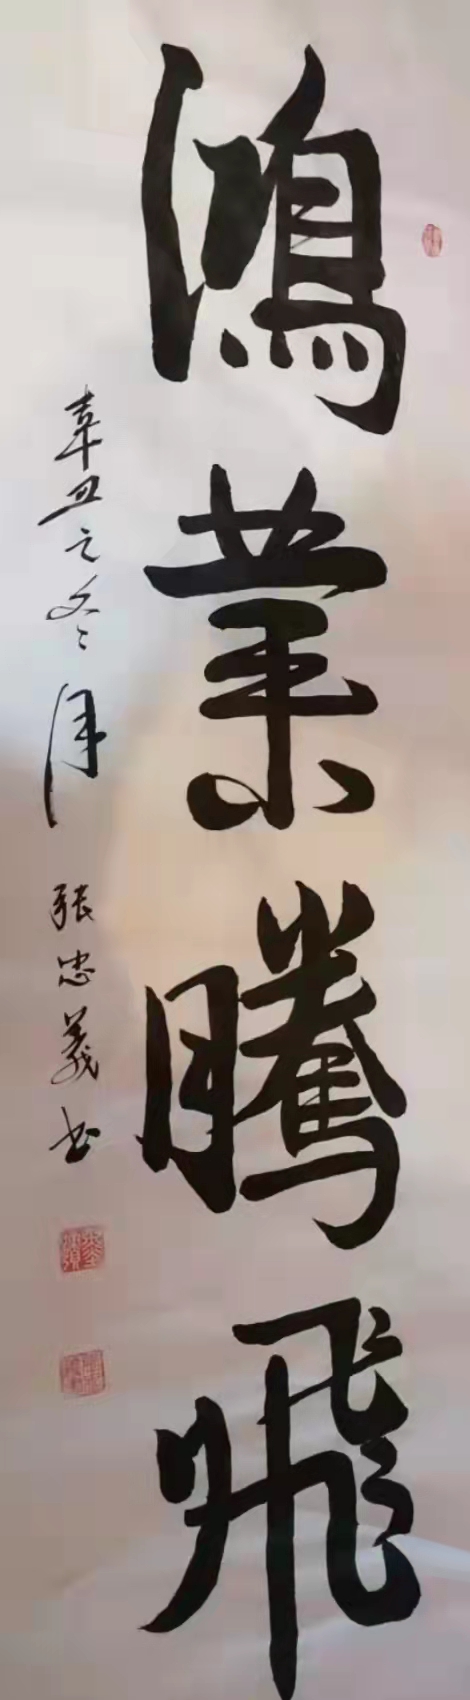 鴻業騰飛
辛丑之冬月 張忠義书